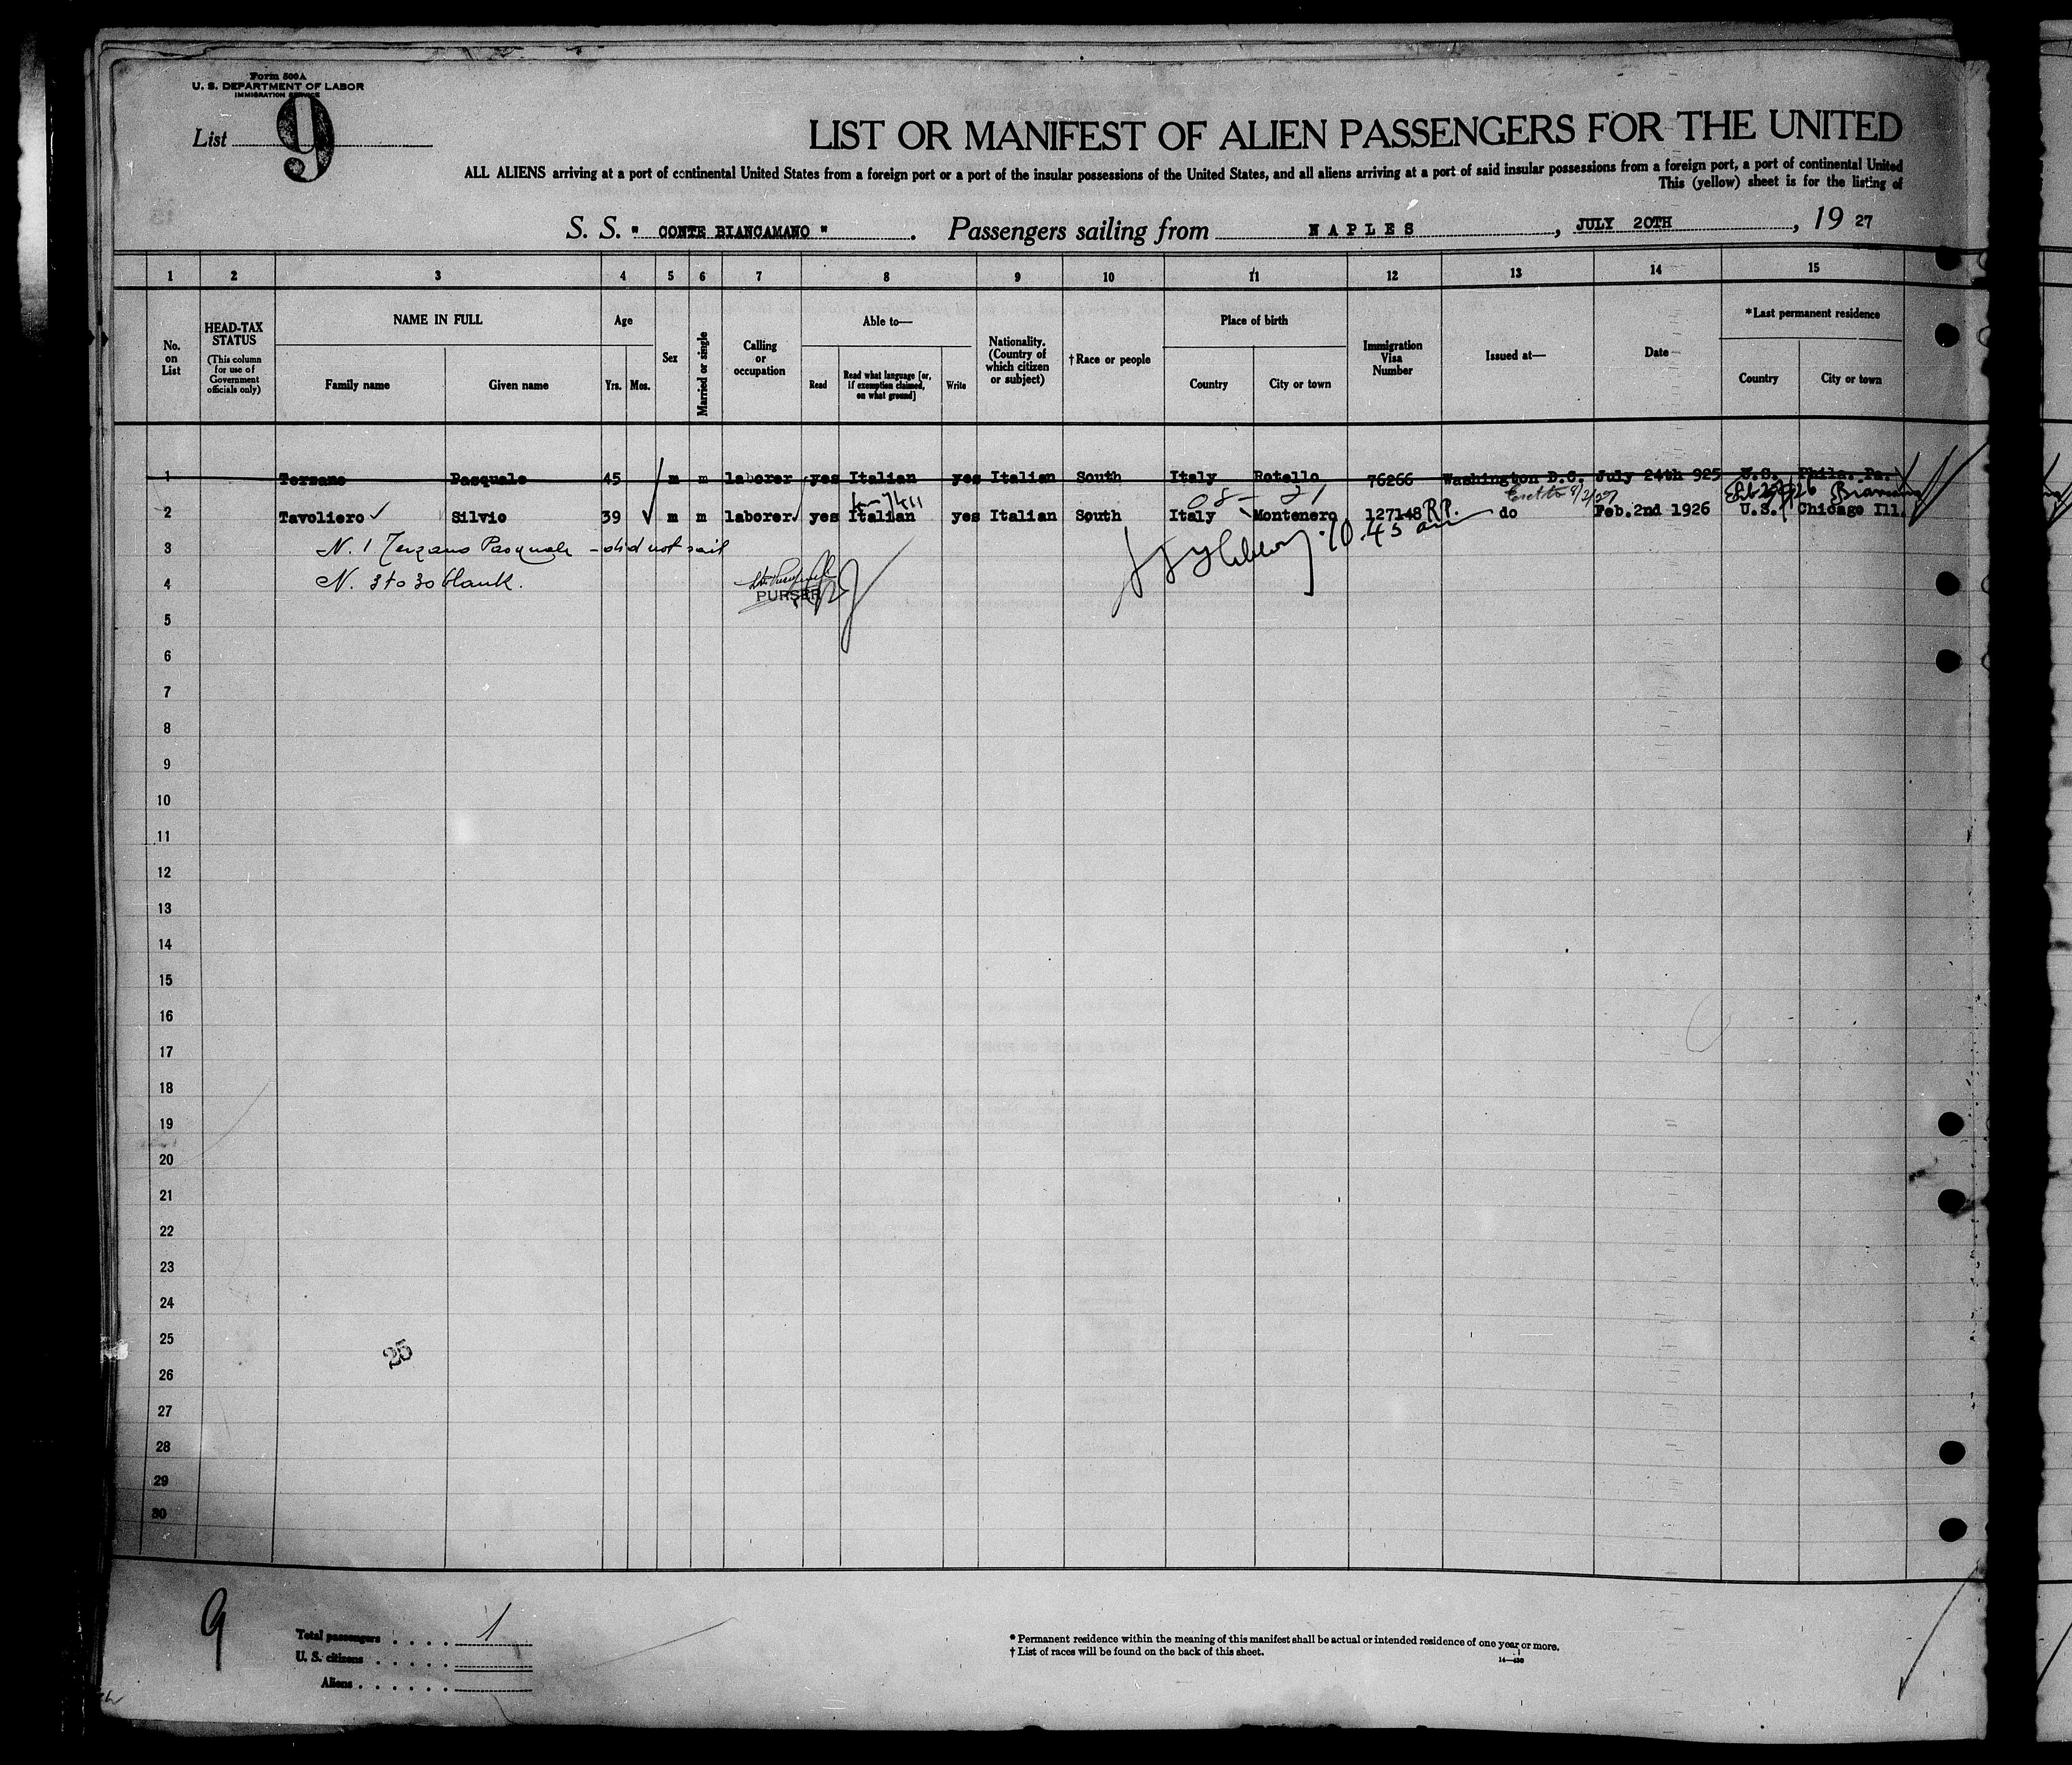 Form 500A
U. S. DEPARTMENT OF LABOR
IMMIGRATION SERVICE
List 9
LIST OR MANIFEST OF ALIEN PASSENGERS FOR THE UNITED
ALL ALIENS arriving at a port of continental United States from a foreign port or a port of the insular possessions of the United States, and all aliens arriving at a port of said insular possessions from a foreign port, a port of continental United
This (yellow) sheet is for the listing of
S. S. " CONTE BIANCAMANO ". Passengers sailing from NAPLES, JULY 20TH, 19 27
1 2 3 4 5 6 7 8 9 10 11 12 13 14 15
No. on List
HEAD-TAX STATUS (This column for use of Government officials only)
NAME IN FULL
Family name Given name
Age
Yrs. Mos.
Sex
Married or single
Calling or occupation
Able to—
Read Read what language [or, if exemption claimed, on what ground] Write
Nationality. (Country of which citizen or subject)
†Race or people
Place of birth
Country City or town
Immigration Visa Number
Issued at—
Date
*Last permanent residence
Country City or town
1 Terzano Pasquale 45 m m laborer yes Italian yes Italian South Italy Rotello 76266 Washington D.C. July 24th 925 U.S. Phila. Pa.
2 Tavoliero Silvio 39 m m laborer yes Italian yes Italian South Italy Montenero 127148 R.P. do Feb.2nd 1926 U.S. Chicago Ill.
3 N. 1 Terzano Pasquale - did not sail 10.45 am
4 N. 3 to 30 blank.
PURSER
5
6
7
8
9
10
11
12
13
14
15
16
17
18
19
20
21
22
23
24
25
25
26
27
28
29
30
9
Total passengers . . . . 1
U. S. citizens . . . . .
Aliens . . . . . .
* Permanent residence within the meaning of this manifest shall be actual or intended residence of one year or more.
† List of races will be found on the back of this sheet.